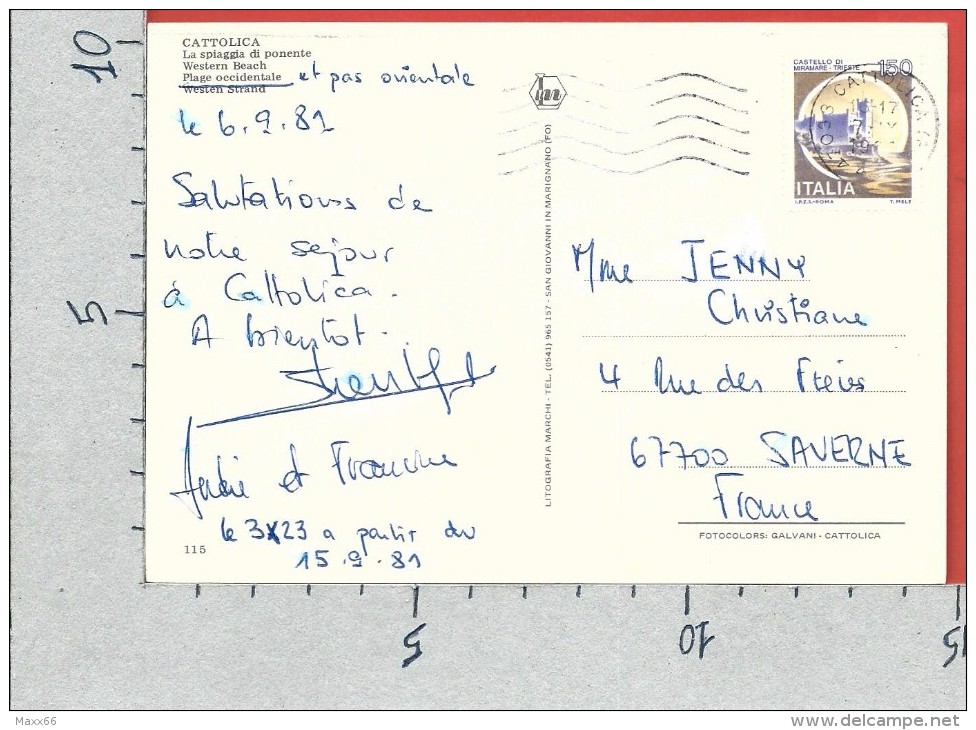 10
5
CATTOLICA
La spiaggia di ponente
Western Beach
Plage occidentale et pas orientale
Westen Strand
le 6.9.81
Salutations de
notre sejour
à Cattolica.
A bientot.
et Francine
le 3x23 a partir du
15.9.81
115
LITOGRAFIA MARCHI - TEL. (0541) 965 157 - SAN GIOVANNI IN MARIGNANO (FO)
CASTELLO DI
MIRAMARE - TRIESTE 150
ITALIA
I.P.Z.S.-ROMA T. MELE
47033 CATTOLICA
Mme JENNY
Christiane
4 Rue des Frères
67700 SAVERNE
France
FOTOCOLORS: GALVANI - CATTOLICA
5 10 15
Maxx66
delcampe.net